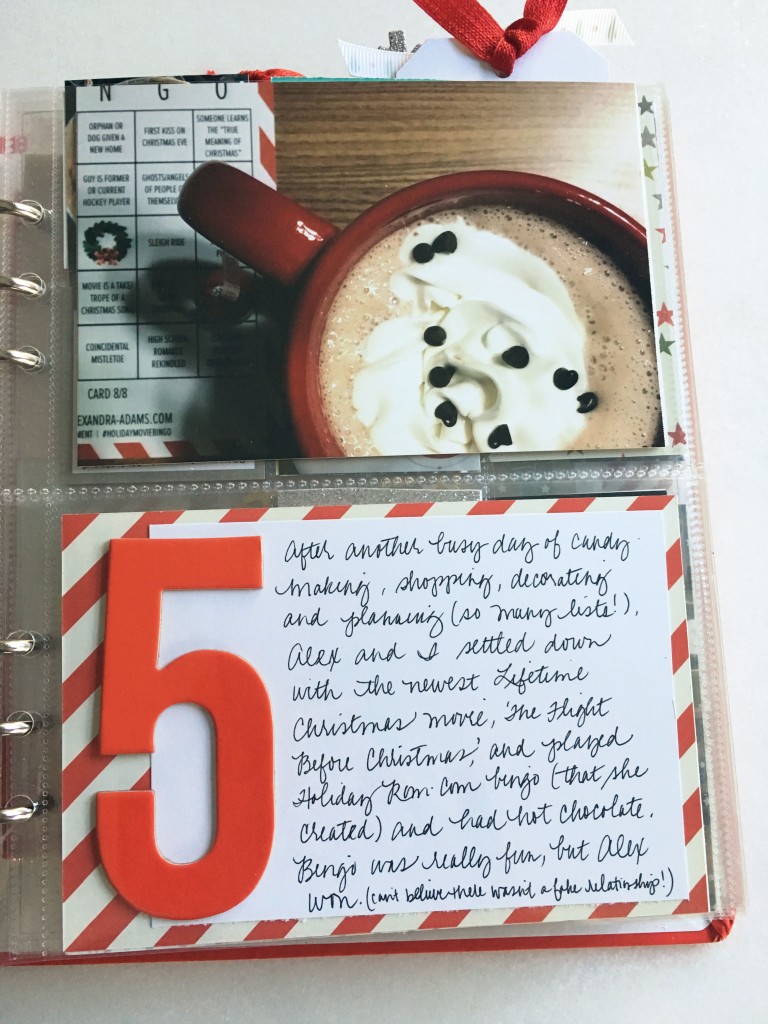 N G O
ORPHAN OR DOG GIVEN A NEW HOME
FIRST KISS ON CHRISTMAS EVE
SOMEONE LEARNS THE "TRUE MEANING OF CHRISTMAS"
GUY IS FORMER OR CURRENT HOCKEY PLAYER
GHOSTS/ANGELS OF PEOPLE THEMSELV
SLEIGH RIDE
MOVIE IS A TAKE TROPE OF A CHRISTMAS
COINCIDENTAL MISTLETOE
HIGH SCHOOL ROMANCE REKINDLED
CARD 8/8
EXANDRA-ADAMS.COM
MENT | #HOLIDAYMOVIEBINGO
5
After another busy day of candy
making, shopping, decorating
and planning (so many lists!),
Alex and I settled down
with the newest Lifetime
Christmas movie, 'The Flight
Before Christmas,' and played
Holiday Rom-Com bingo (that she
created) and had hot chocolate.
Bingo was really fun, but Alex
won. (can't believe there wasn't a fake relationship!)